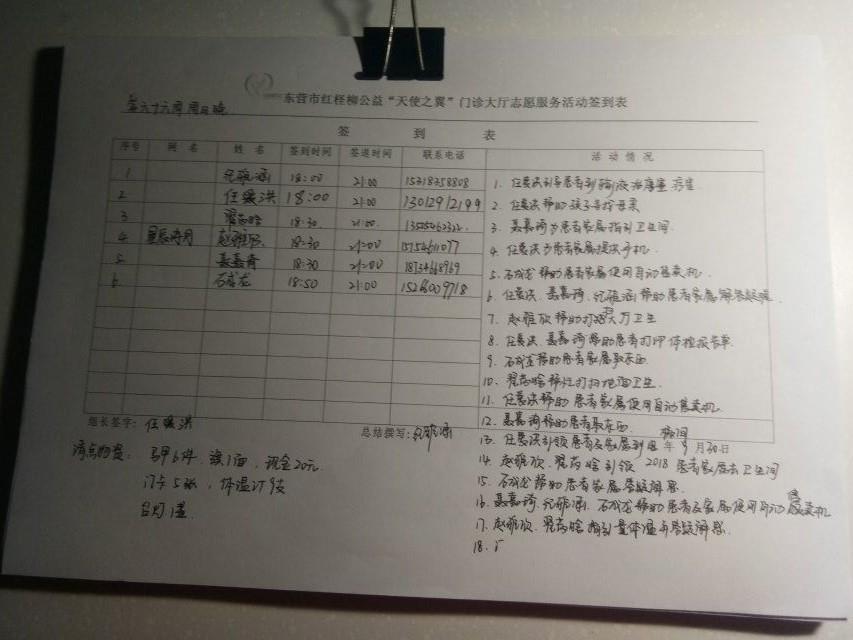 东营市红柽柳公益“天使之翼”门诊大厅志愿服务活动签到表
第六十六周 周日晚
签 到 表
序号 网 名 姓 名 签到时间 签退时间 联系电话 活 动 情 况
1 倪雅涵 18:00 21:00 15318358808
2 任爱洪 18:00 21:00 13012912199
3 18:30 21:00
4 赵雅欣 18:30 21:00 15154611077
5 聂嘉琦 18:30 21:00
6 石成龙 18:50 21:00
1. 任爱洪引导患者到输液治疗室
2. 任爱洪帮助孩子寻找母亲
3. 聂嘉琦为患者家属指引卫生间
4. 任爱洪为患者家属提供手机
5. 石成龙帮助患者家属使用自动售货机
6. 任爱洪、聂嘉琦、倪雅涵帮助患者家属解答疑难
7. 赵雅欣帮助打扫大厅卫生
8. 任爱洪、聂嘉琦帮助患者打印体检报告单
9. 石成龙帮助患者家属取东西
10. 打扫地面卫生
11. 任爱洪帮助患者家属使用自动售货机
12. 聂嘉琦帮助患者取东西
13. 任爱洪引领患者及家属到病间
14. 赵雅欣、引领患者家属去卫生间
15. 石成龙帮助患者家属答疑解惑
16. 聂嘉琦、倪雅涵、石成龙帮助患者及家属使用自动售货机
17. 赵雅欣、指引量体温与答疑解惑
18.
组长签字: 任爱洪
总结撰写: 倪雅涵
2018 年 9 月 30 日
清点物资: 马甲6件, 旗1面, 现金20元
门卡5张, 体温计9支
台灯1盏